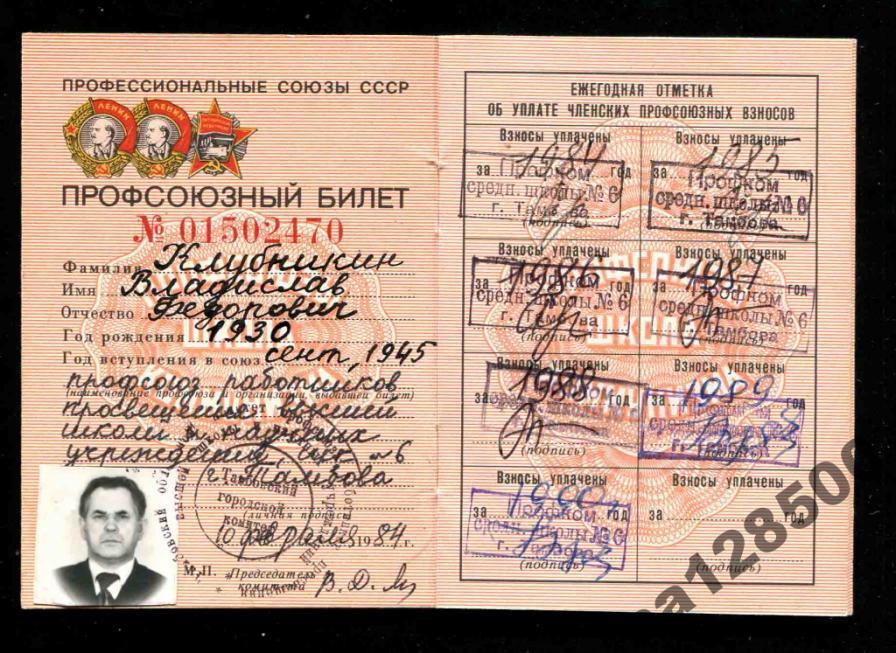 ПРОФЕССИОНАЛЬНЫЕ СОЮЗЫ СССР
ЛЕНИН ЛЕНИН
ПРОФСОЮЗНЫЙ БИЛЕТ
№ 01502470
Фамилия Клубникин
Имя Владислав
Отчество Федорович
Год рождения 1930
Год вступления в союз сент, 1945
профсоюз работников
(наименование профсоюза и организации, выдавшей билет)
просвещения высшей
школы и научных
учреждений № 6
г. Тамбова
Тамбовский
городской
комитет
(личная подпись)
10 февраля 1984 г.
М.П. Председатель
комитета
ЕЖЕГОДНАЯ ОТМЕТКА
ОБ УПЛАТЕ ЧЛЕНСКИХ ПРОФСОЮЗНЫХ ВЗНОСОВ
Взносы уплачены
за 1984 год
Профком
средн. школы № 6
г. Тамбова
(подпись)
Взносы уплачены
за 1985 год
Профком
средн. школы № 6
г. Тамбова
(подпись)
Взносы уплачены
за 1986 год
Профком
средн. школы № 6
г. Тамбова
(подпись)
Взносы уплачены
за 1987 год
Профком
средн. школы № 6
г. Тамбова
(подпись)
Взносы уплачены
за 1988 год
(подпись)
Взносы уплачены
за 1989 год
Профком
г. Тамбова
(подпись)
Взносы уплачены
за 1990 год
Профком
средн. школы № 6
г. Тамбова
(подпись)
Взносы уплачены
за год
(подпись)